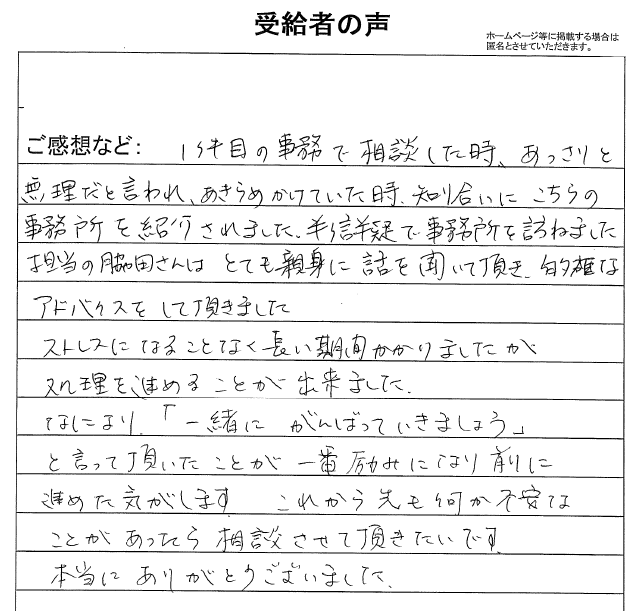 受給者の声
ホームページ等に掲載する場合は
匿名とさせていただきます。
ご感想など: 1件目の事務で相談した時、あっさりと
無理だと言われ、あきらめかけていた時、知り合いにこちらの
事務所を紹介されました。半信半疑で事務所を訪ねました
担当の脇田さんはとても親身に話を聞いて頂き、的確な
アドバイスをして頂きました
ストレスになることなく長い期間かかりましたが
処理を進めることが出来ました。
なにより、「一緒にがんばっていきましょう」
と言って頂いたことが一番励みになり前に
進めた気がします これから先も何か不安な
ことがあったら相談させて頂きたいです
本当にありがとうございました。